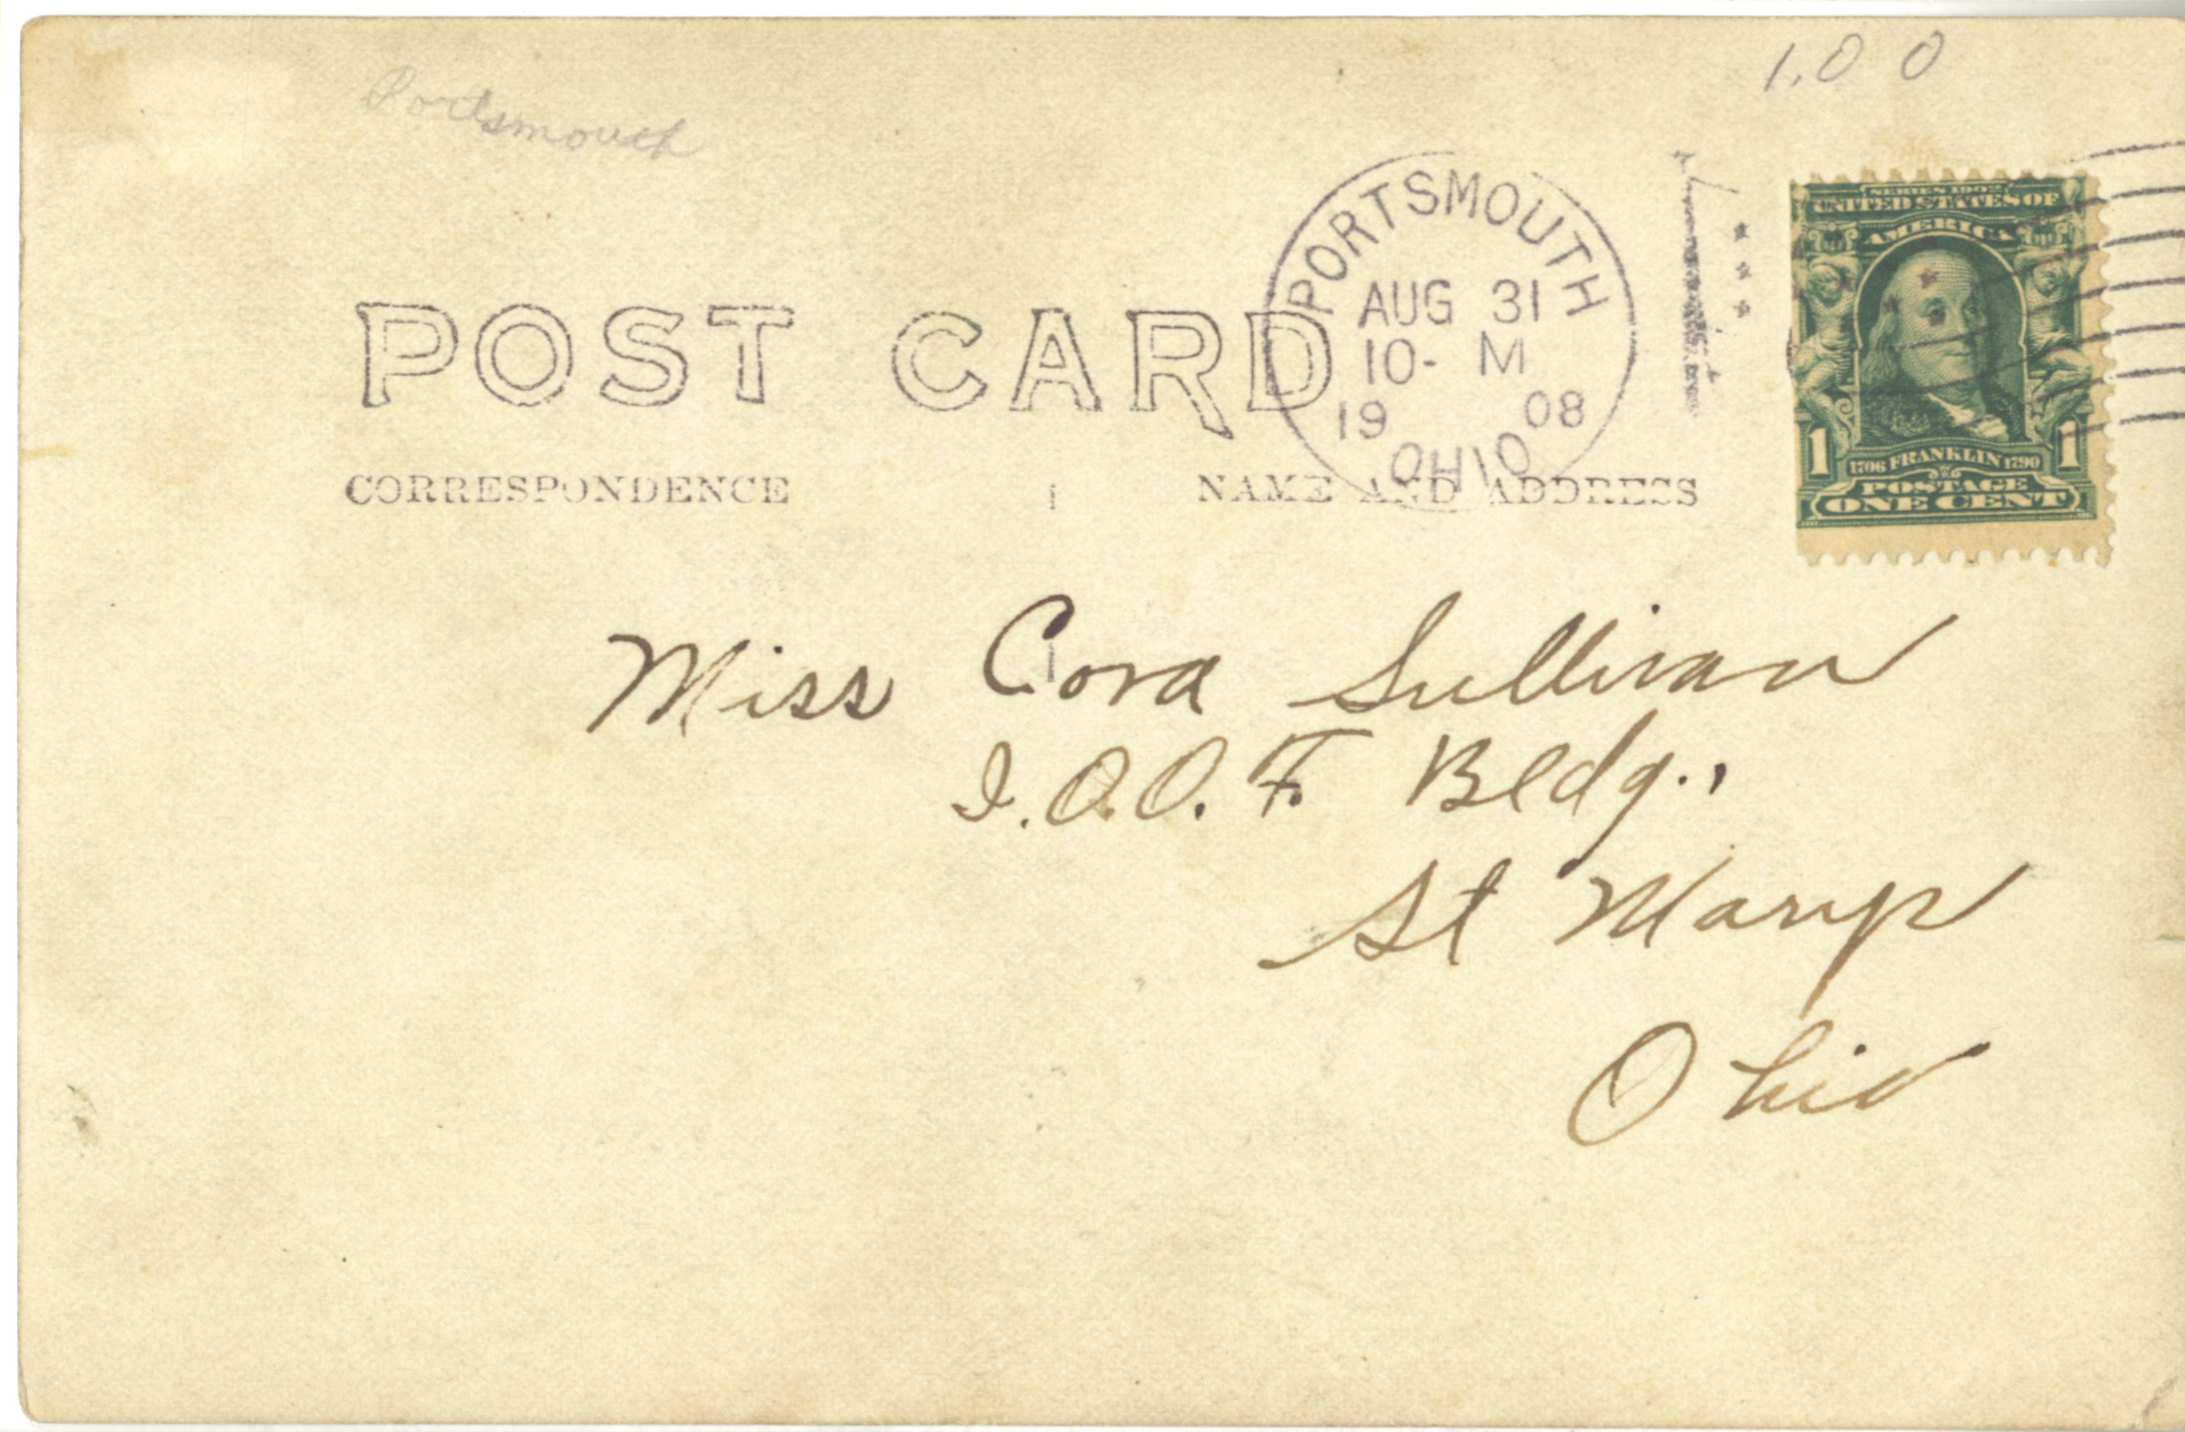 Portsmouth
1.00
PORTSMOUTH
AUG 31
10- M
19 08
OHIO
SERIES 1902
UNITED STATES OF
AMERICA
1 1
1706 FRANKLIN 1790
POSTAGE
ONE CENT
POST CARD
CORRESPONDENCE
NAME AND ADDRESS
Miss Cora Sullivan
I.O.O.F. Bldg.,
St Marys
Ohio